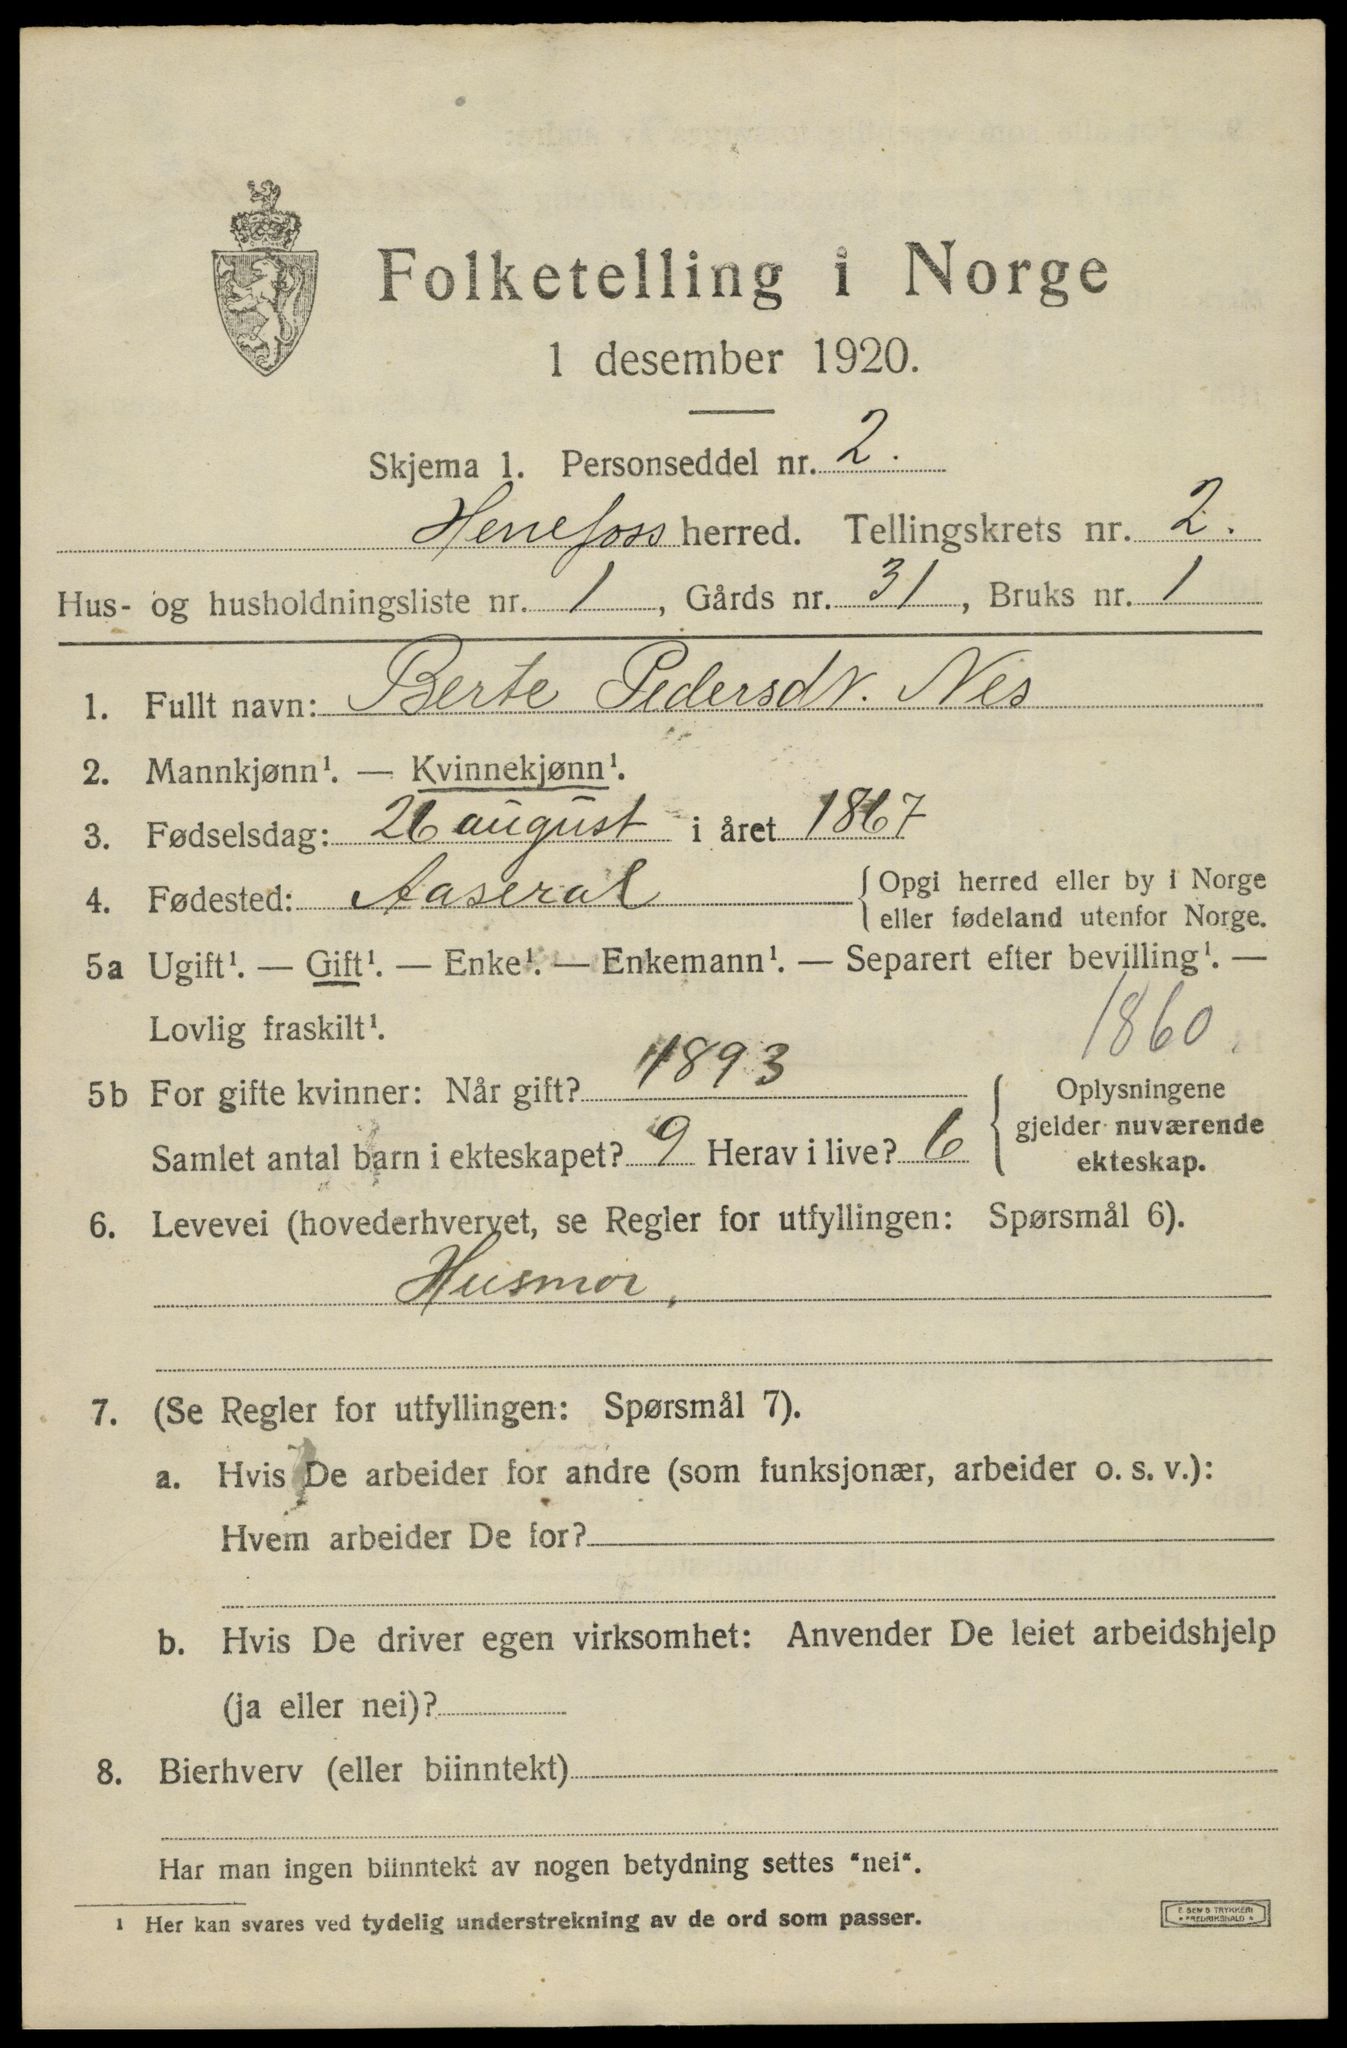 Folketelling i Norge
1 desember 1920.
Skjema 1. Personseddel nr. 2.
Herrefoss herred. Tellingskrets nr. 2.
Hus- og husholdningsliste nr. 1, Gårds nr. 31, Bruks nr. 1
1. Fullt navn: Berte Pedersdtr. Nes
2. Mannkjønn¹. — Kvinnekjønn¹.
3. Fødselsdag: 26 august i året 1867
4. Fødested: Aaseral {Opgi herred eller by i Norge
eller fødeland utenfor Norge.
5a Ugift¹. — Gift¹. — Enke¹. — Enkemann¹. — Separert efter bevilling¹. —
Lovlig fraskilt¹.
1860
5b For gifte kvinner: Når gift? 1893
Samlet antal barn i ekteskapet? 9 Herav i live? 6
Oplysningene
gjelder nuværende
ekteskap.
6. Levevei (hovederhvervet, se Regler for utfyllingen: Spørsmål 6).
Husmor,
7. (Se Regler for utfyllingen: Spørsmål 7).
a. Hvis De arbeider for andre (som funksjonær, arbeider o. s. v.):
Hvem arbeider De for?
b. Hvis De driver egen virksomhet: Anvender De leiet arbeidshjelp
(ja eller nei)?
8. Bierhverv (eller biinntekt)
Har man ingen biinntekt av nogen betydning settes "nei".
¹ Her kan svares ved tydelig understrekning av de ord som passer.
TRYKKERI
FREDRIKSHALD